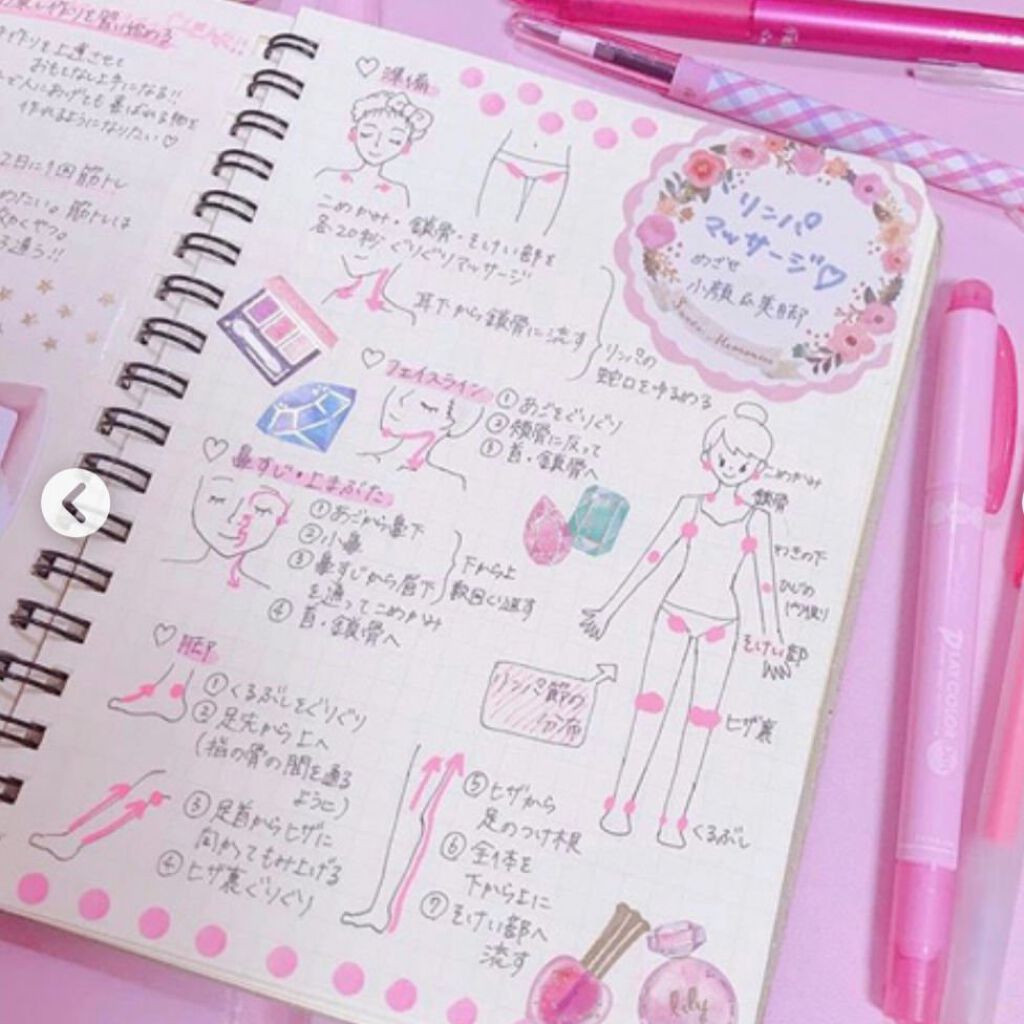 作りを上達させて
おもてなし上手になる!!
人にあげても喜ばれる物を
作れるようになりたい♡
2日に1回筋トレ
めたい。筋トレは
通う!!
リンパ
マッサージ♡
めざせ
小顔&美脚
♡準備
こめかみ・鎖骨・そけい部を
各20秒ぐりぐりマッサージ
耳下から鎖骨に流す
リンパの
蛇口をゆるめる
♡フェイスライン
①あごをぐりぐり
②頬骨に反って
③首・鎖骨へ
♡鼻すじ・上まぶた
①あごから鼻下
②小鼻
③鼻すじから眉下
を通ってこめかみ
④首・鎖骨へ
下から上
数回くり返す
♡脚
①くるぶしをぐりぐり
②足先から上へ
(指の骨の間を通る
ように)
③足首からヒザに
向かってもみ上げる
④ヒザ裏ぐりぐり
⑤ヒザから
足のつけ根
⑥全体を
下から上に
⑦そけい部へ
流す
リンパ節の
分布
こめかみ
鎖骨
わきの下
ひじの
内側
そけい部
ヒザ裏
くるぶし
lily